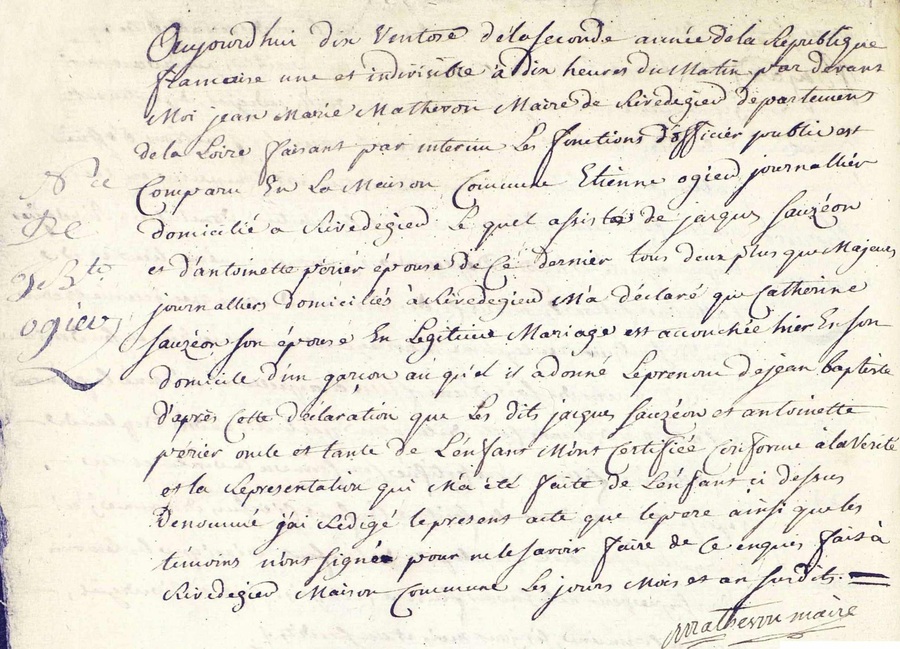 Aujourd'hui dix Ventose dela seconde année de la Republique
francaise une et indivisible à dix heures du Matin par devant
Moi jean Marie Matheron Maire de Rivedegied departement
de la Loire faisant par interim Les fonctions d'officier public est
Comparu En La Maison Commune Etienne ogied journallier
domicilié a Rivedegied Le quel assisté de jacques Sauzéon
et d'antoinette périer épouse de Cé dernier tous deux plus que Majeurs
journalliers domiciliés à Rivedegied M'a déclaré que Catherine
Sauzéon son épouse En Legitime Mariage est accouchée hier En son
domicile d'un garçon auquel il a donné Le prenom de jean baptiste
d'après Cette déclaration que Les dits jacques Sauzéon et antoinette
périer oncle et tante de L'enfant M'ont Certifiée Conforme à la Verité
et la Représentation qui M'a été faite de L'enfant ci dessus
denommé j'ai Rédigé le present acte que le pere ainsi que les
témoins n'ont signé pour ne le savoir faire de Ce enquis fait à
Rivedegied Maison Commune Les jours Mois et an susdits.
Matheron maire
Re
J B.te
ogied